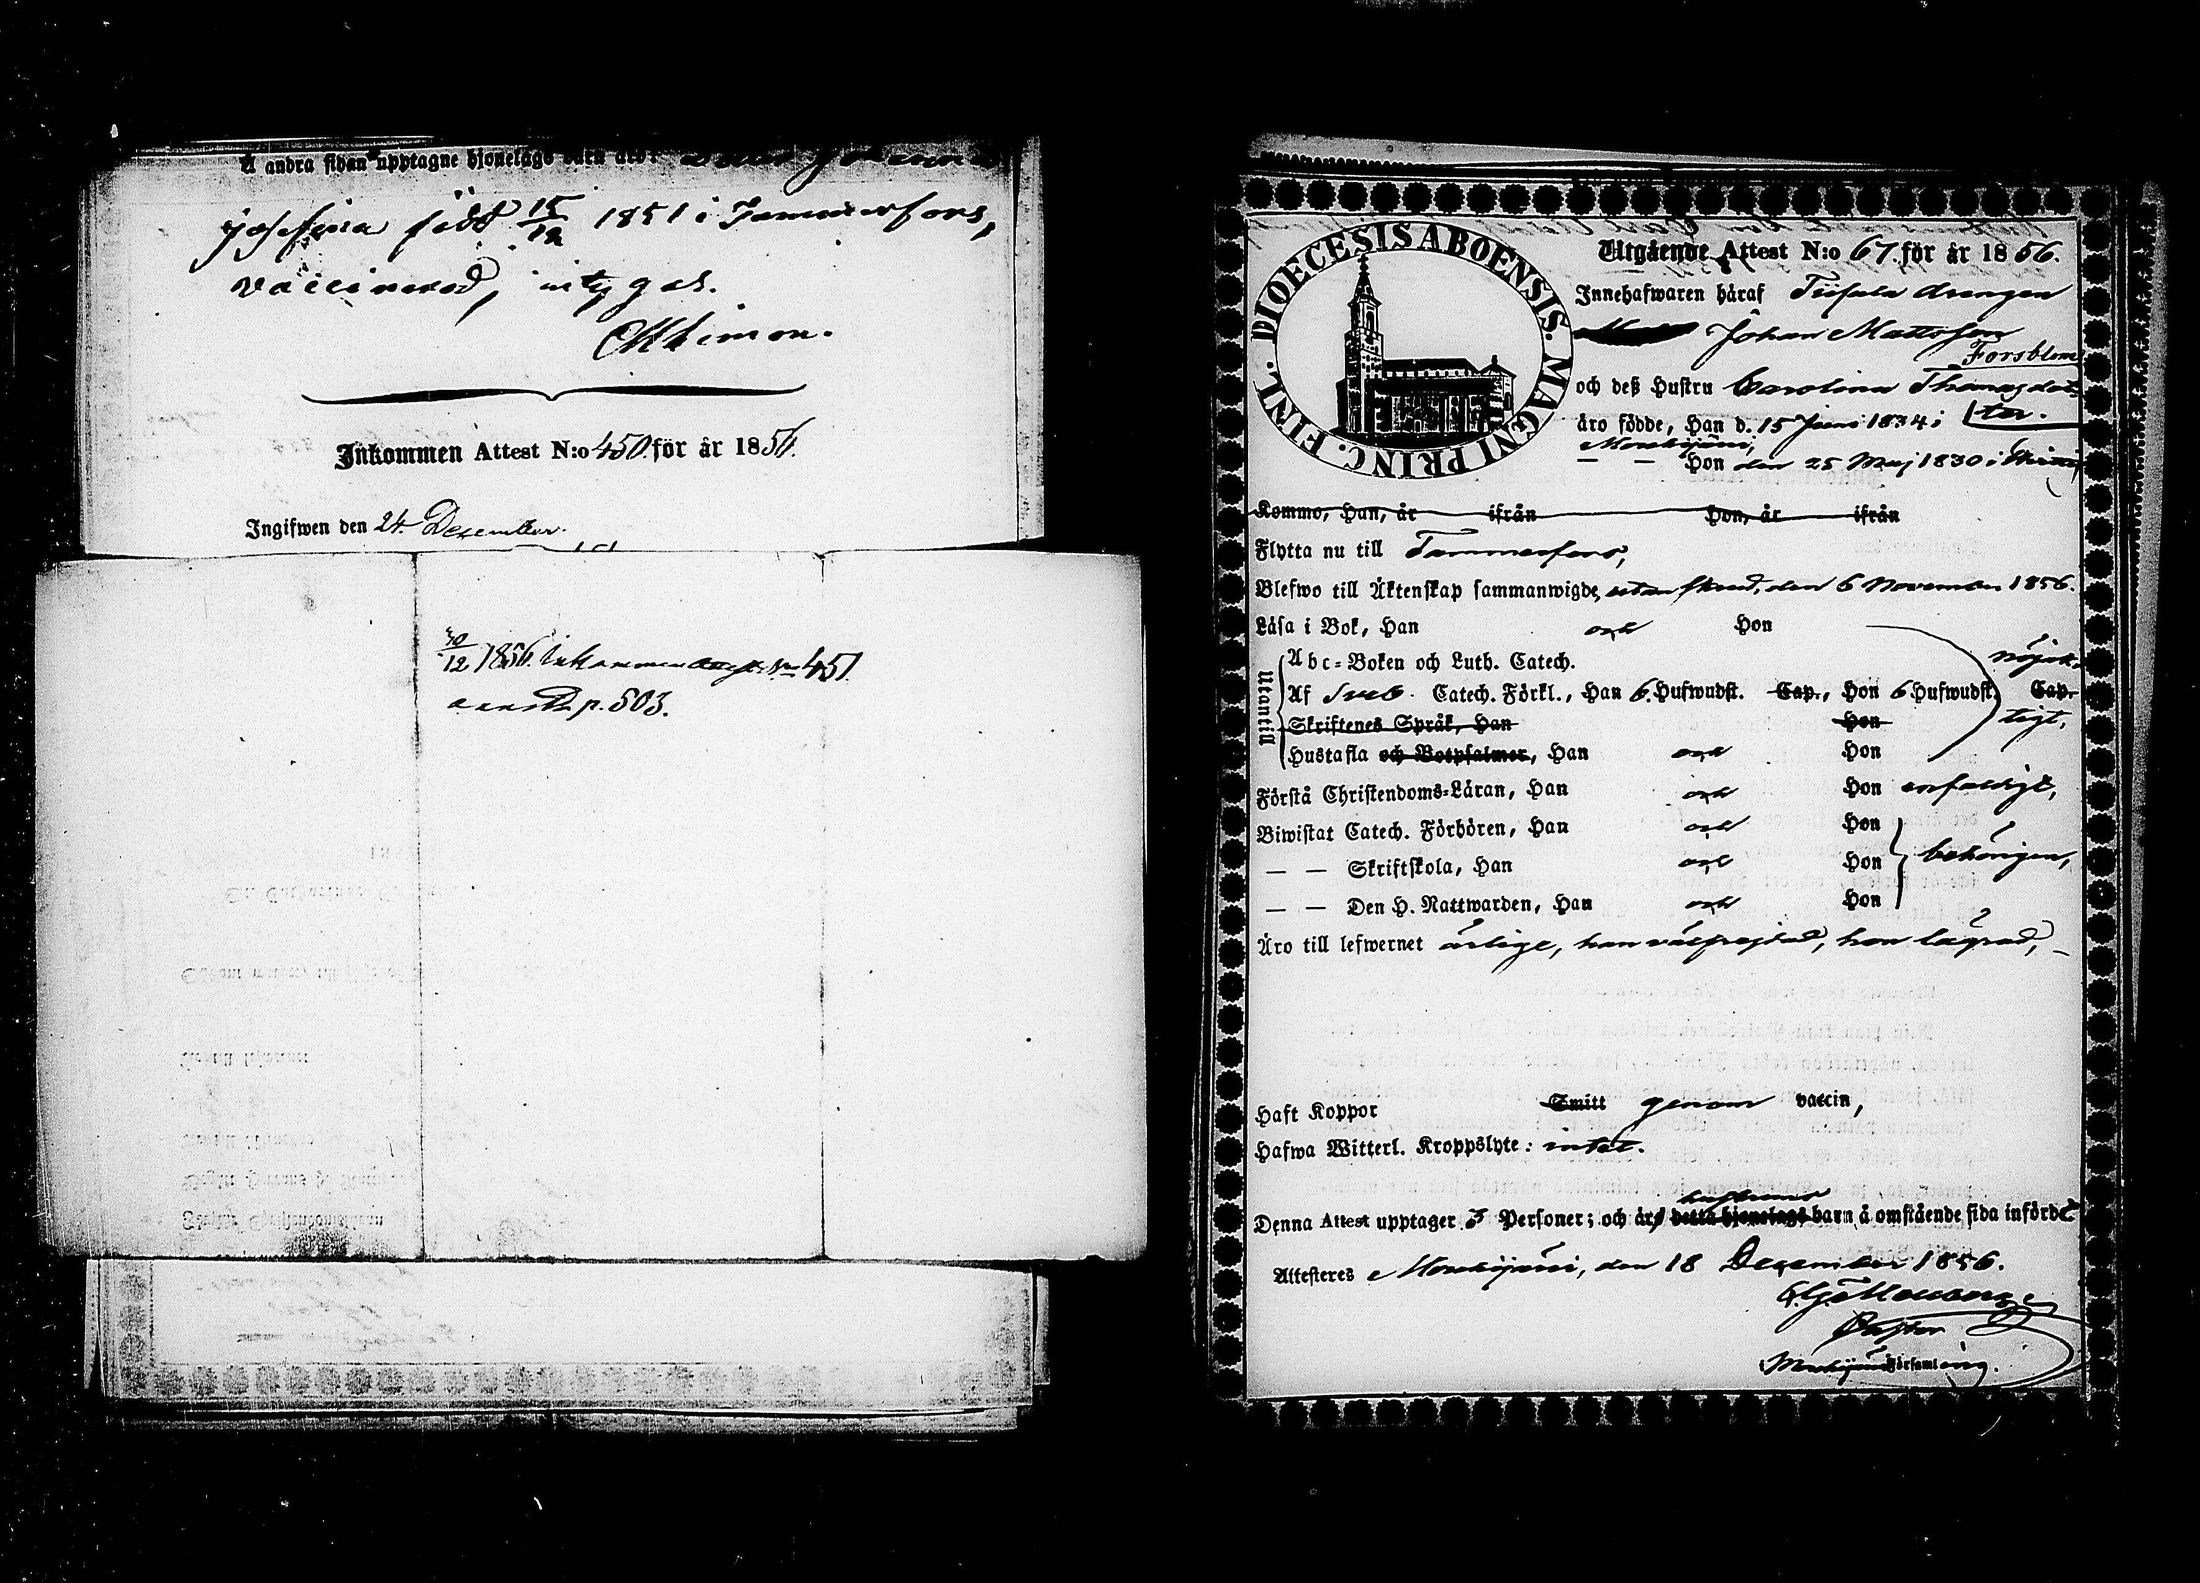 Å andra sidan upptagne hjonelags barn äro:
Josefina född 15/12 1851 i Tammerfors,
vaccinerad, intygas.
Inkommen Attest N:o 450. för år 1856.
Ingifwen den 24 December.
30/12 1856. Inkommen attest No 451.
p. 503.
DIOECESIS ABOENSIS. MAGNI PRINC. FINL.
Utgående Attest N:o 67. för år 1856.
Innehafwaren häraf drengen
Johan Mattsson
Forsblom
och deß Hustru Carolina Thomasdot-
ter.
äro födde, Han d. 15 Juni 1834 i
Mouhijärvi,
— — Hon den 25 Maj 1830 i
Kommo, Han, år ifrån Hon, år ifrån
Flytta nu till Tammerfors,
Blefwo till Äktenskap sammanwigde, utan skrud, den 6 November 1856.
Läsa i Bok, Han och Hon
Utantill
Abc-Boken och Luth. Catech.
nöjak-
Af Sveb. Catech. Förkl., Han 6 Hufwudst. Cap., Hon 6 Hufwudst. Cap.
Skriftenes Språk, Han Hon
tigt,
Hustafla och Botpsalmer, Han och Hon
Förstå Christendoms-Läran, Han och Hon enfaldigt,
Biwistat Catech. Förhören, Han och Hon
— — Skriftskola, Han och Hon behörigen,
— — Den H. Nattwarden, Han och Hon
Äro till lefwernet ärlige, han välfrejdad, hon lägrad, —
Haft Koppor Smitt genom vaccin,
Hafwa Witterl. Kroppslyte: intet.
hustruns
Denna Attest upptager 3 Personer; och äro detta hjonelags barn å omstående sida införde
Attesteres Mouhijärvi, den 18 December 1856.
Pastor
Mouhijärvi Församling.